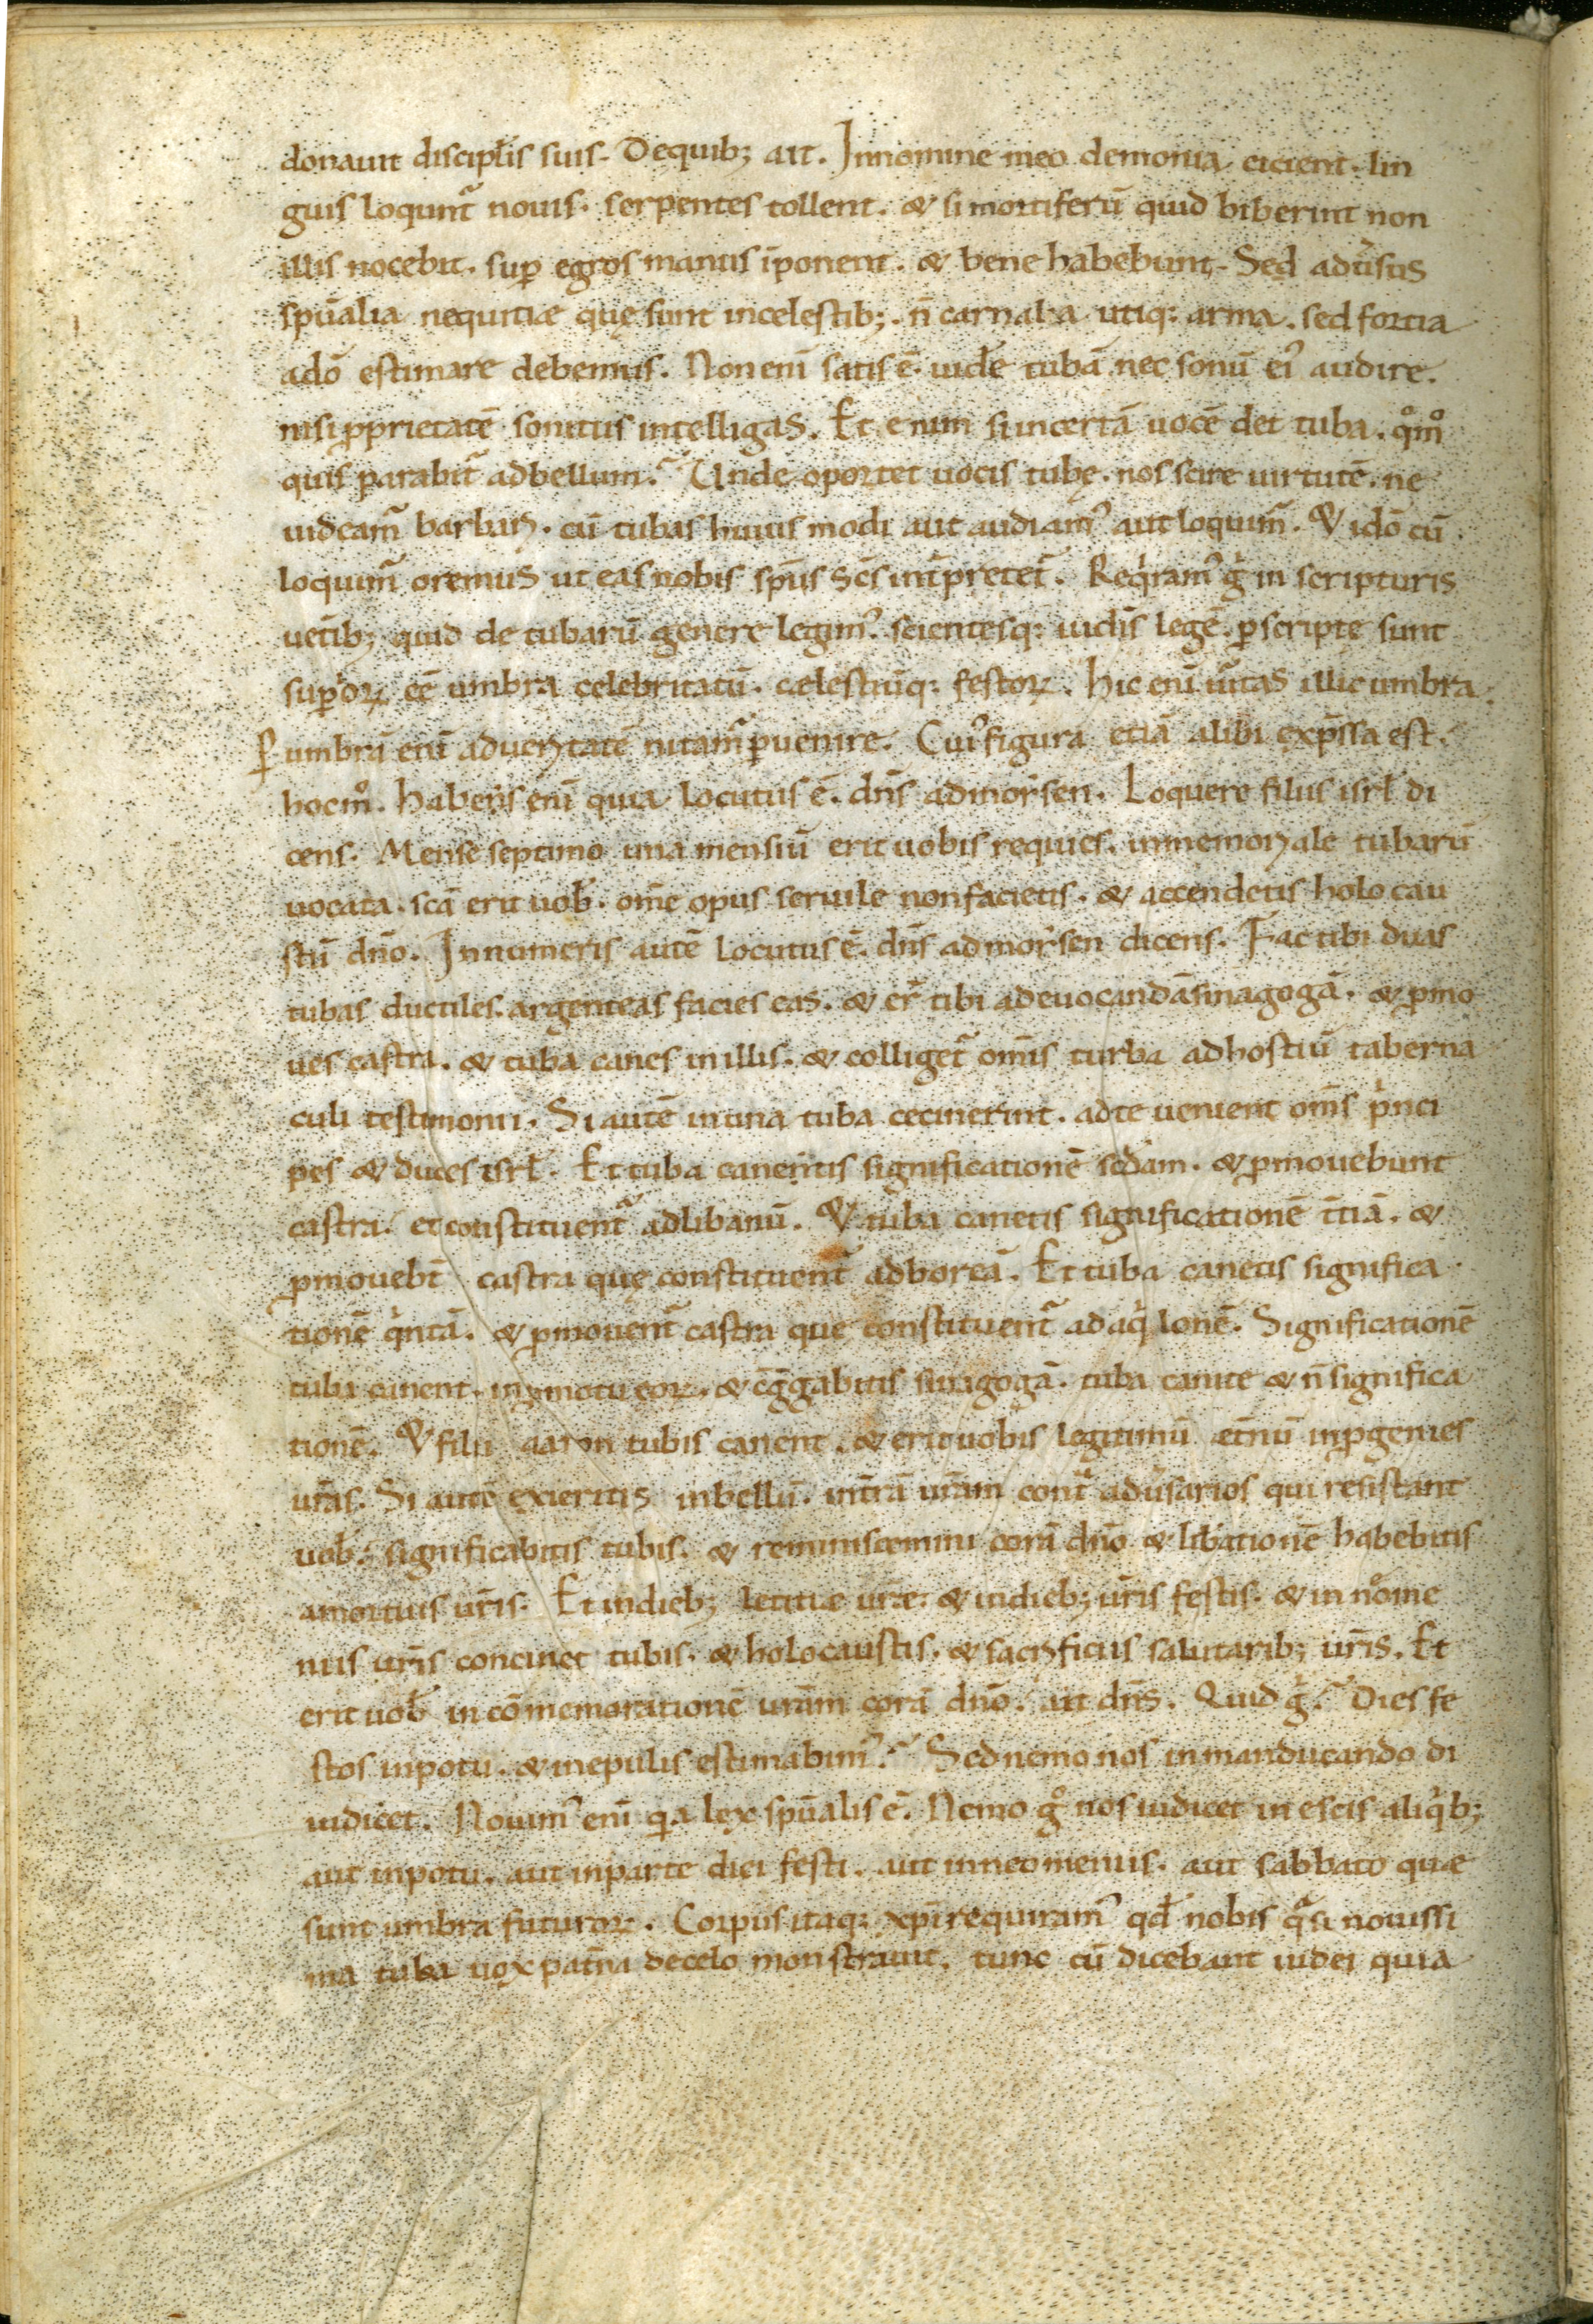 donauit discipl̃is suis. Dequib; ait. Innomine meo demonia eicient. lin
guis loqunt᷑ nouis. serpentes tollent. & si mortiferū quid biberint non
illis nocebit. sup̱ egros manus īponent. & bene habebunt. Sed adũsus
spūalia nequitiæ quę sunt incelestib;. n̄ carnalia utiq: arma. sed fortia
adō estimare debemus. Non enī satis ē. uidẽ tubā nec sonū eiꝰ audire.
nisi ꝓprietatē sonitus intelligas. Et enim si incertā uocē det tuba. qͦmͦ
quis parabit᷑ adbellum? Unde oportet uocis tubę. nos scire uirtutē. ne
uideam᷑ barbari. cū tubas huius modi aut audiamꝰ aut loquim᷑. & idō cū
loquim᷑ oremus ut eas nobis sp̄us sc̄s int̃pretet᷑. Reqͥramꝰ gͥ in scripturis
uet̃ib; quid de tubarū genere legimꝰ. scientesq: uidīs legē. p̱scripte sunt
sup̱ioꝝ eē umbra celebritatū. cælestiūq: festoꝝ. hic enī ũitas illic umbra.
P̱ umbrā enī aduerıtatē nitam᷑ p̱uenire. Cuiꝰ figura etiā alibi exp̄ssa est.
hocmͦ. habens enī quia locutus ē. dn̄s admoẏsen. Loquere filiis isrł di
cens. Mense septimo una mensiū erit uobis requies. inmemoriale tubarū
uocata. sc̄a erit uoƀ. om̄e opus seruile nonfacietis. & accendetis holo cau
stū dn̄o. Innumeris autē locutus ē. dn̄s admoẏsen dicens. Fac tibi duas
tubas ductiles. argenteas facies eas. & er̃ tibi adeuocandā sinagogā. & ꝓmo
ues castra. & tuba canes in illis. & colliget᷑ om̄is turba adhostiū taberna
culi testimonii. Si autē inuna tuba cecinerint. adte uenient om̄s pͥnci
pes & duces isrł. Et tuba canentis significationē sc̄dam. & ꝓmouebunt
castra. et constituent᷑ adlibanū. & tuba canetis significationē t̄tiā. &
ꝓmouebt̄ castra quę constituent᷑ adboreā. Et tuba canetis significa
tionē qͥntā. & ꝓmouent᷑ castra que constituent᷑ ad aqͥlonē. Significationē
tuba canent. inꝓmotu eoꝝ. & c̄g̃gabitis sinagogā. tuba canite & n̄ significa
tionē. & filii aaron tubis canent. & erit uobis legitimū et̃nū inꝓgenies
ur̄as. Si autē exieritis inbellū. int̃rā ur̄am contͣ adũsarios qui resistant
uoƀ. significabitis tubis. & reminiscemini corā dn̄o & lib̃ationē habebitis
amortuis ur̄is. Et indieb; letitiæ ur̄e. & indieb; ur̄is festis. & in nͦome
niis ur̄is concinet tubis. & holocaustis. & sacrificiis salutarib; ur̄is. Et
erit uoƀ in cōmemorationē ur̄am corā dn̄o. ait dn̄s. Quid gͥ? Dies fe
stos inpotu. & inepulis estimabimꝰ? Sed nemo nos in manducando di
iudicet. Nouimꝰ enī qͥa lex spūalis ē. Nemo gͦ nos iudicet in escis aliqͥb;
aut inpotu. aut inparte diei festi. aut inneomeniis. aut sabbato quæ
sunt umbra futuroꝝ. Corpus itaq: xp̄i requiramꝰ qđ nobis qͣsi nouissi
ma tuba uox pat̃na decelo monstrauit. tunc cū dicebant iudei quia